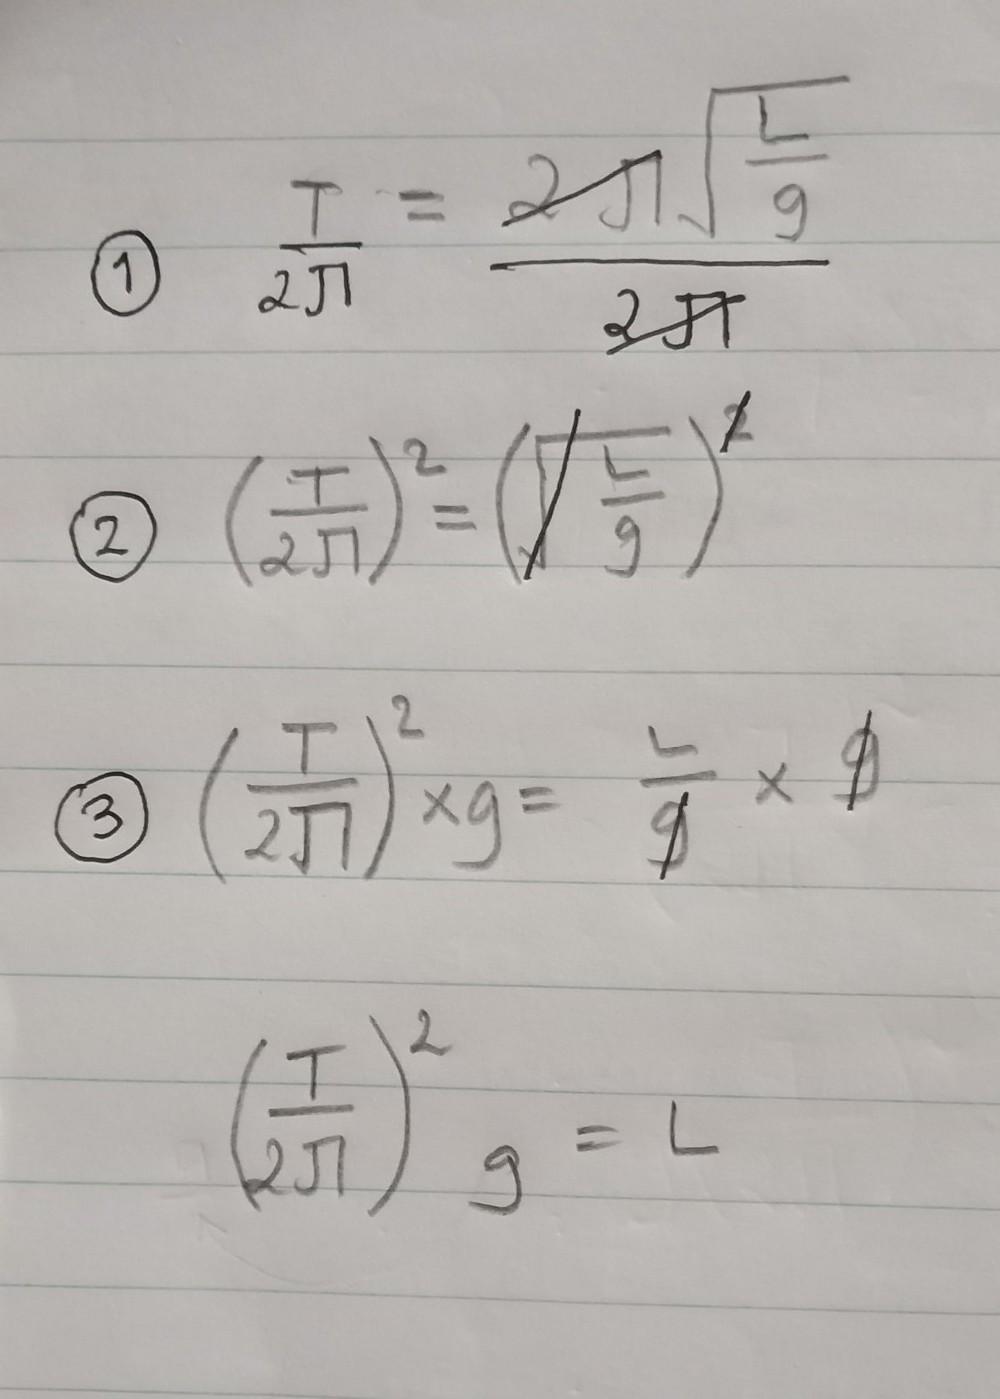 ① T/2π = 2π√(L/g)/2π
② (T/2π)² = (√(L/g))²
③ (T/2π)² × g = L/g × g
(T/2π)² g = L